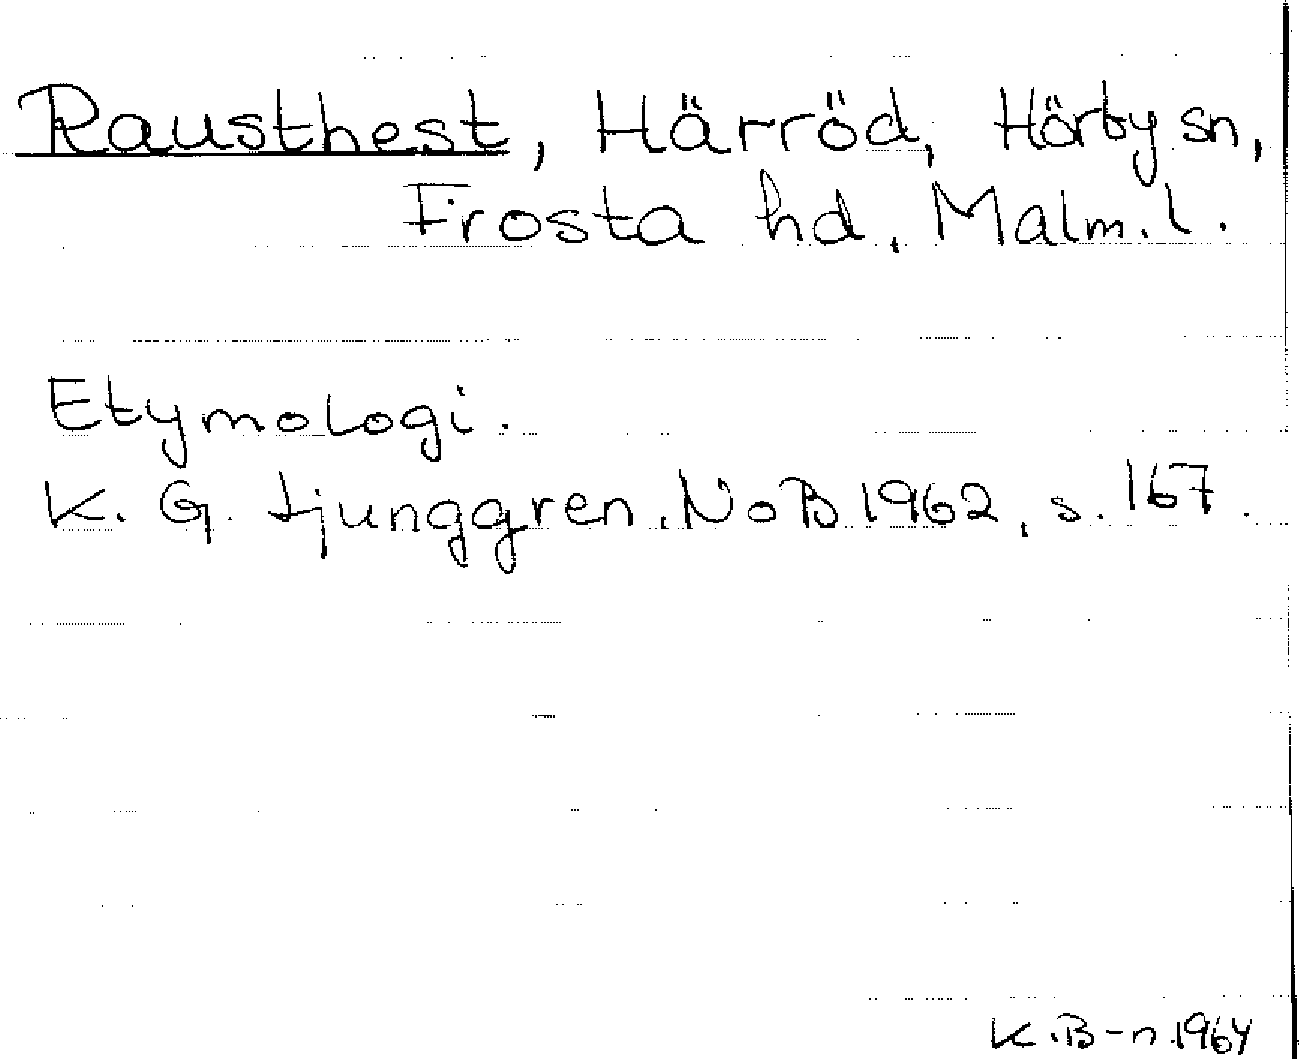 Rausthest, Härröd, Hörby sn,
Frosta hd, Malm. l.
Etymologi.
K. G. Ljunggren. NoB 1962, s. 167.
K.B-n.1964